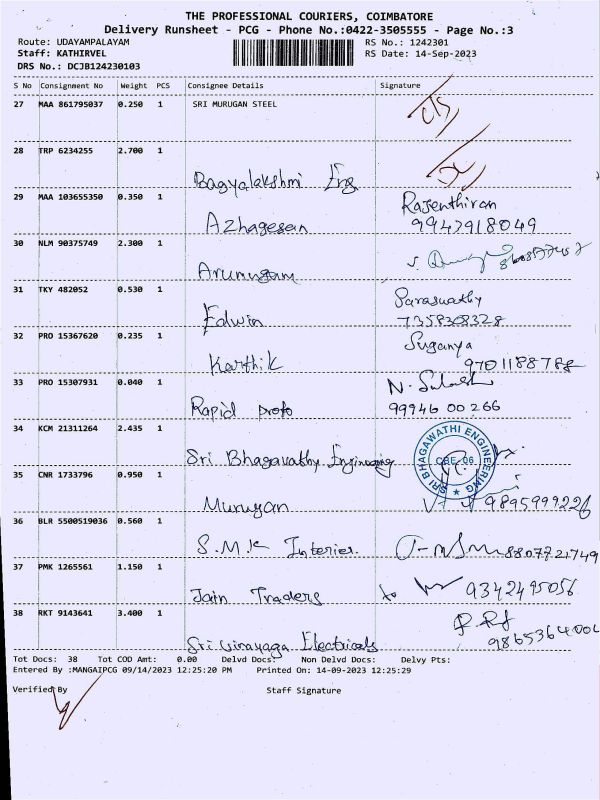 THE PROFESSIONAL COURIERS, COIMBATORE
Delivery Runsheet - PCG - Phone No.:0422-3505555 - Page No.:3
Route: UDAYAMPALAYAM RS No.: 1242301
Staff: KATHIRVEL RS Date: 14-Sep-2023
DRS No.: DCJB124230103
S No Consignment No Weight PCS Consignee Details Signature
27 MAA 861795037 0.250 1 SRI MURUGAN STEEL
28 TRP 6234255 2.700 1
Bagyalakshmi Eng
29 MAA 103655350 0.350 1 Rajenthiran
Azhagesan 9942918049
30 NLM 90375749 2.300 1
Arumugam
31 TKY 482052 0.530 1 Saraswathy
Edwin 7358308328
32 PRO 15367620 0.235 1 Suganya
Karthik 9701188788
33 PRO 15307931 0.040 1
Rapid proto 99946 00 266
34 KCM 21311264 2.435 1
Sri Bhagavathy Engineering
SRI BHAGAWATHI ENGINEERING
CBE-06
35 CNR 1733796 0.950 1
Murugan 9895999226
36 BLR 5500519036 0.560 1
S.M.K Interier. 8807721749
37 PMK 1265561 1.150 1
Jain Traders 9342495056
38 RKT 9143641 3.400 1
Sri Vinayaga Electricals
Tot Docs: 38 Tot COD Amt: 0.00 Delvd Docs: Non Delvd Docs: Delvy Pts:
Entered By :MANGAIPCG 09/14/2023 12:25:20 PM Printed On: 14-09-2023 12:25:29
Verified By Staff Signature